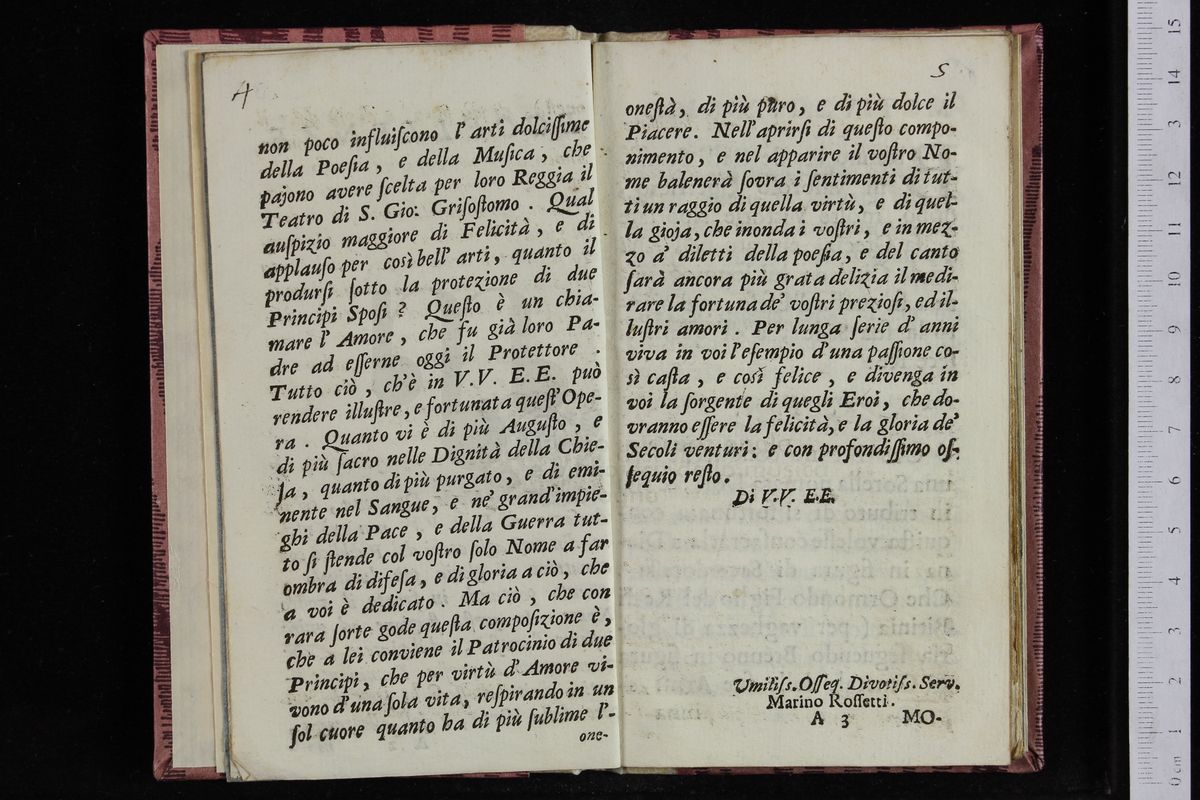 4
non poco influiſcono l' arti dolciſſime
della Poeſia, e della Muſica, che
pajono avere ſcelta per loro Reggia il
Teatro di S. Gio: Griſoſtomo. Qual
auſpizio maggiore di Felicità, e di
applauſo per così bell' arti, quanto il
produrſi ſotto la protezione di due
Principi Spoſi? Queſto è un chia-
mare l' Amore, che fu già loro Pa-
dre ad eſſerne oggi il Protettore.
Tutto ciò, ch'è in V.V. E.E. può
rendere illuſtre, e fortunata queſt' Ope-
ra. Quanto vi è di più Auguſto, e
di più ſacro nelle Dignità della Chie-
ſa, quanto di più purgato, e di emi-
nente nel Sangue, e ne' grand' impie-
ghi della Pace, e della Guerra tut-
to ſi ſtende col voſtro ſolo Nome a far
ombra di difeſa, e di gloria a ciò, che
a voi è dedicato. Ma ciò, che con
rara ſorte gode queſta compoſizione è,
che a lei conviene il Patrocinio di due
Principi, che per virtù d' Amore vi-
vono d'una ſola vita, reſpirando in un
ſol cuore quanto ha di più ſublime l'-
one-
5
oneſtà, di più puro, e di più dolce il
Piacere. Nell' aprirſi di queſto compo-
nimento, e nel apparire il voſtro No-
me balenerà ſovra i ſentimenti di tut-
ti un raggio di quella virtù, e di quel-
la gioja, che inonda i voſtri, e in mez-
zo a' diletti della poeſia, e del canto
ſarà ancora più grata delizia il medi-
rare la fortuna de' voſtri prezioſi, ed il-
luſtri amori. Per lunga ſerie d' anni
viva in voi l'eſempio d'una paſſione co-
sì caſta, e così felice, e divenga in
voi la ſorgente di quegli Eroi, che do-
vranno eſſere la felicità, e la gloria de'
Secoli venturi; e con profondiſſimo oſ-
ſequio reſto.
Di V.V. E.E.
Umiliſs. Oſſeq. Divotiſs. Serv.
Marino Roſſetti.
A 3 MO-
0 cm 1 2 3 4 5 6 7 8 9 10 11 12 3 14 15